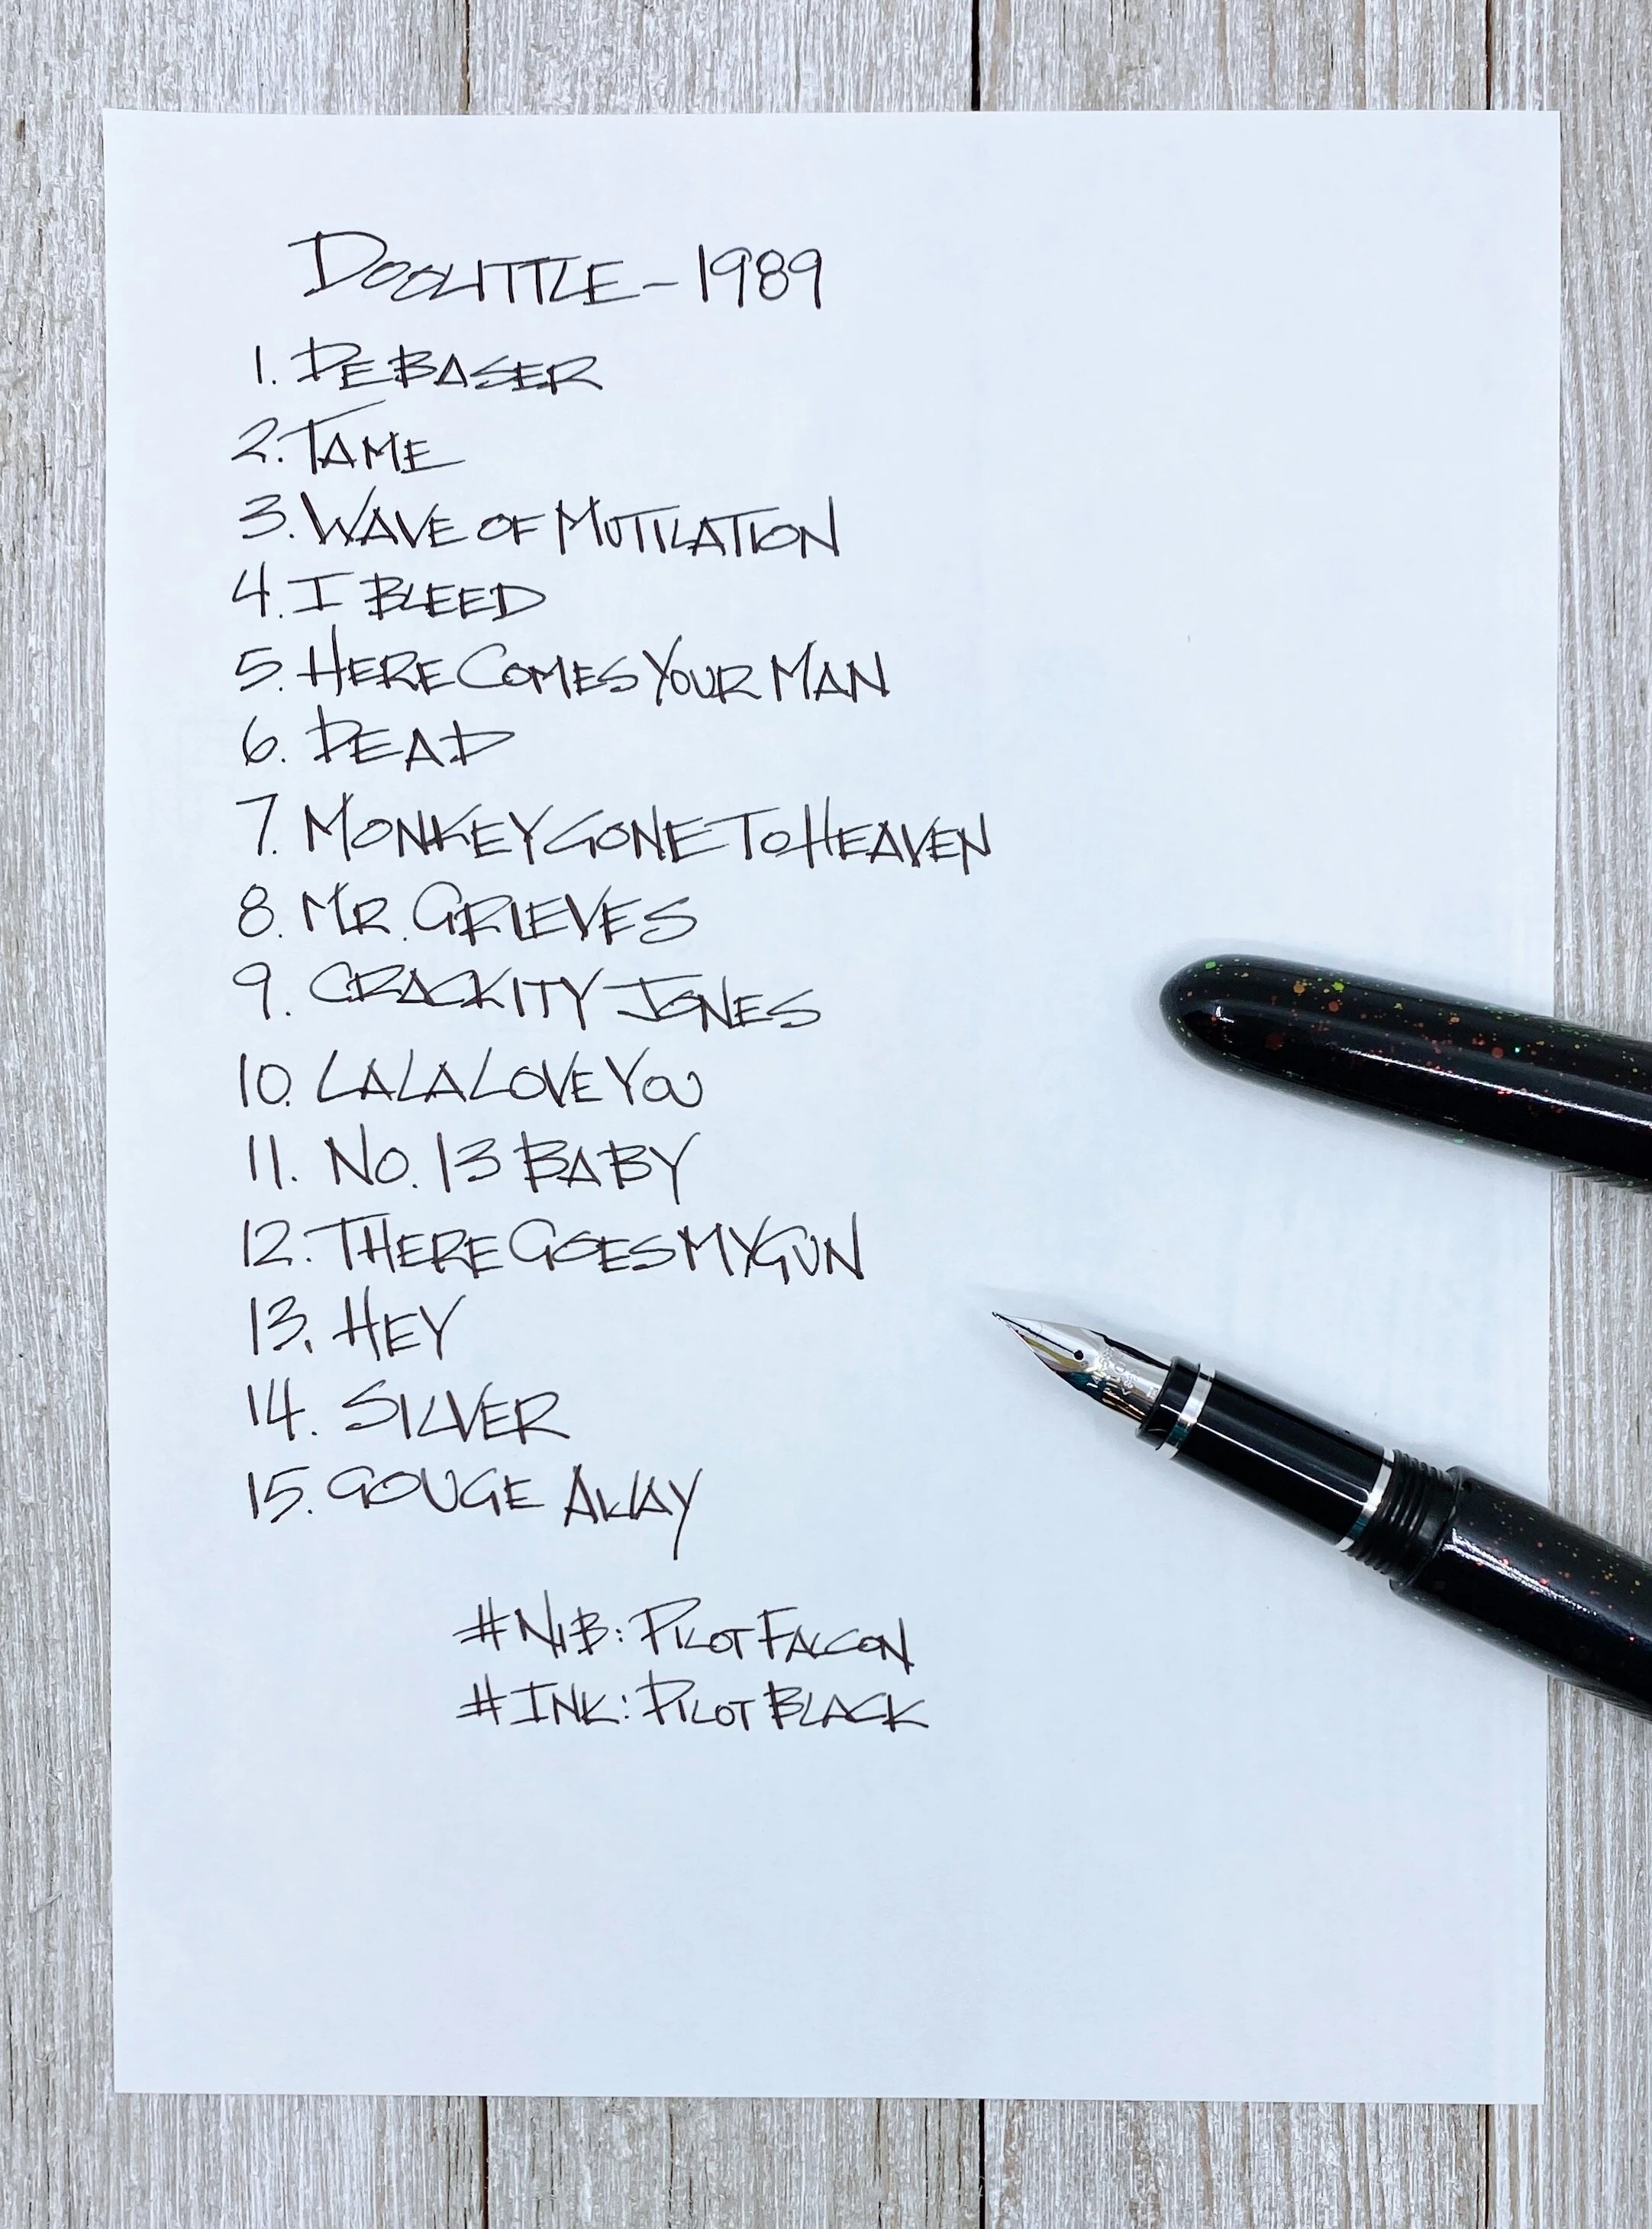 DOOLITTLE - 1989
1. DEBASER
2. TAME
3. WAVE OF MUTILATION
4. I BLEED
5. HERE COMES YOUR MAN
6. DEAD
7. MONKEY GONE TO HEAVEN
8. MR. GRIEVES
9. CRACKITY JONES
10. LA LA LOVE YOU
11. NO. 13 BABY
12. THERE GOES MY GUN
13. HEY
14. SILVER
15. GOUGE AWAY
#NIB: PILOT FALCON
#INK: PILOT BLACK